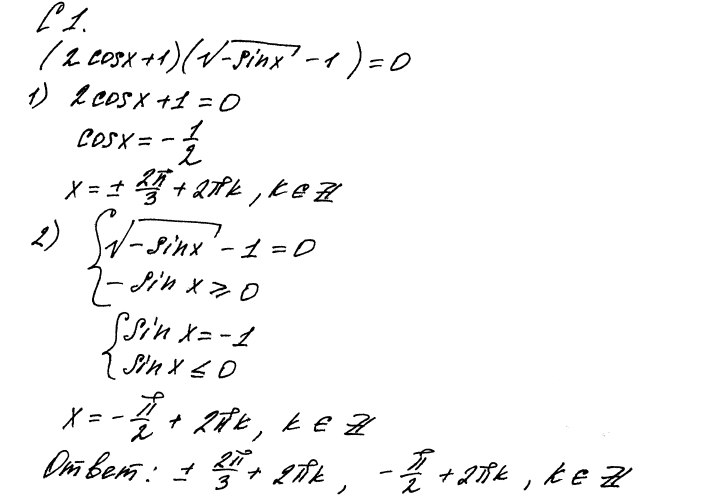 С 1.
(2 cosx+1)(√(-sinx) -1)=0
1) 2cosx+1=0
cosx=-1/2
x=± 2π/3 + 2πk, k∈ℤ
2) { √(-sinx) -1=0
-sin x ≥ 0
{ sin x=-1
sin x ≤ 0
x=-π/2 + 2πk, k ∈ ℤ
Ответ: ± 2π/3 + 2πk, -π/2 +2πk, k∈ ℤ